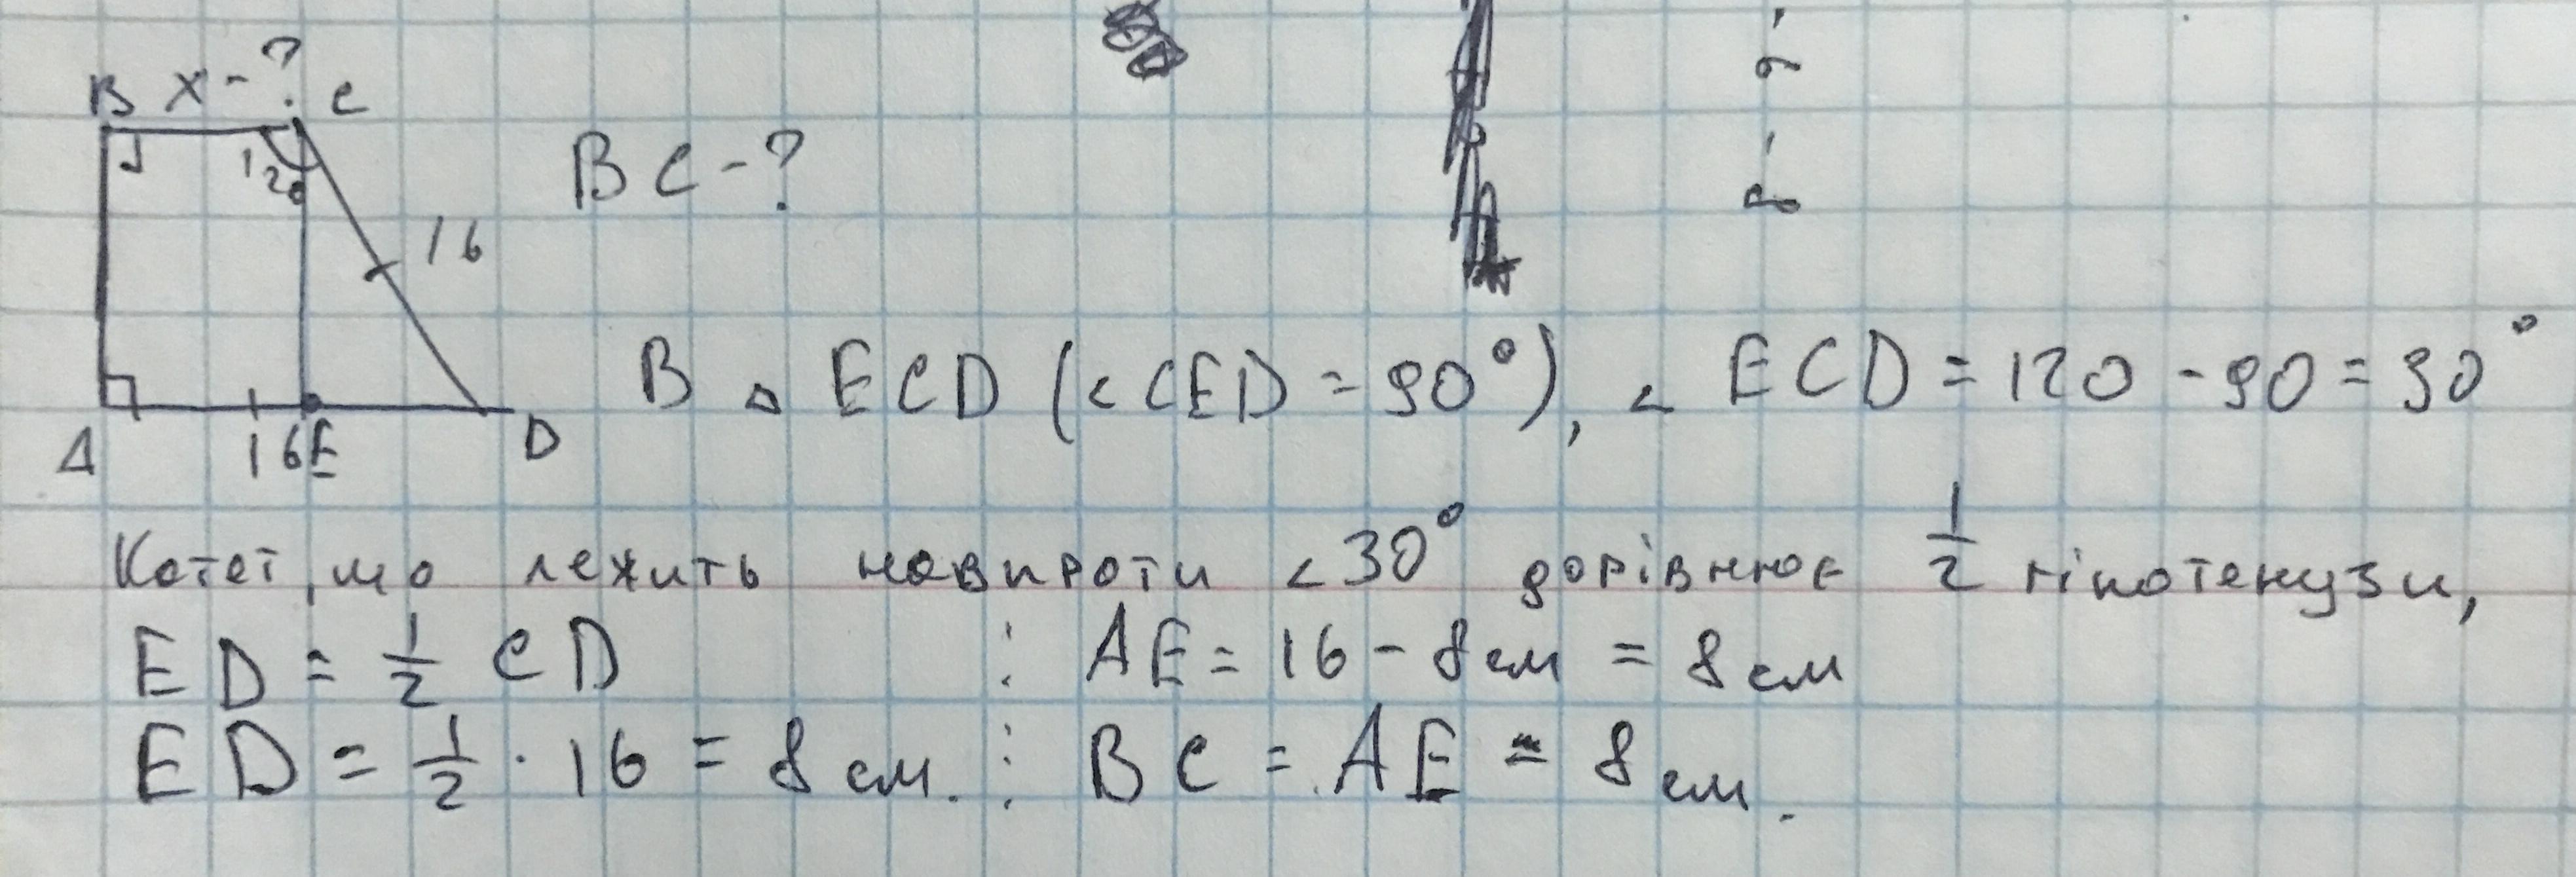 B x-? C
120
16
A 16 E D
BC-?
В △ ECD (<CED = 90°), < ECD = 120 - 90 = 30°
Катет, що лежить навпроти <30° дорівнює 1/2 гіпотенузи,
ED = 1/2 CD
ED = 1/2 · 16 = 8 см.
AE = 16 - 8см = 8 см
BC = AE = 8 см.